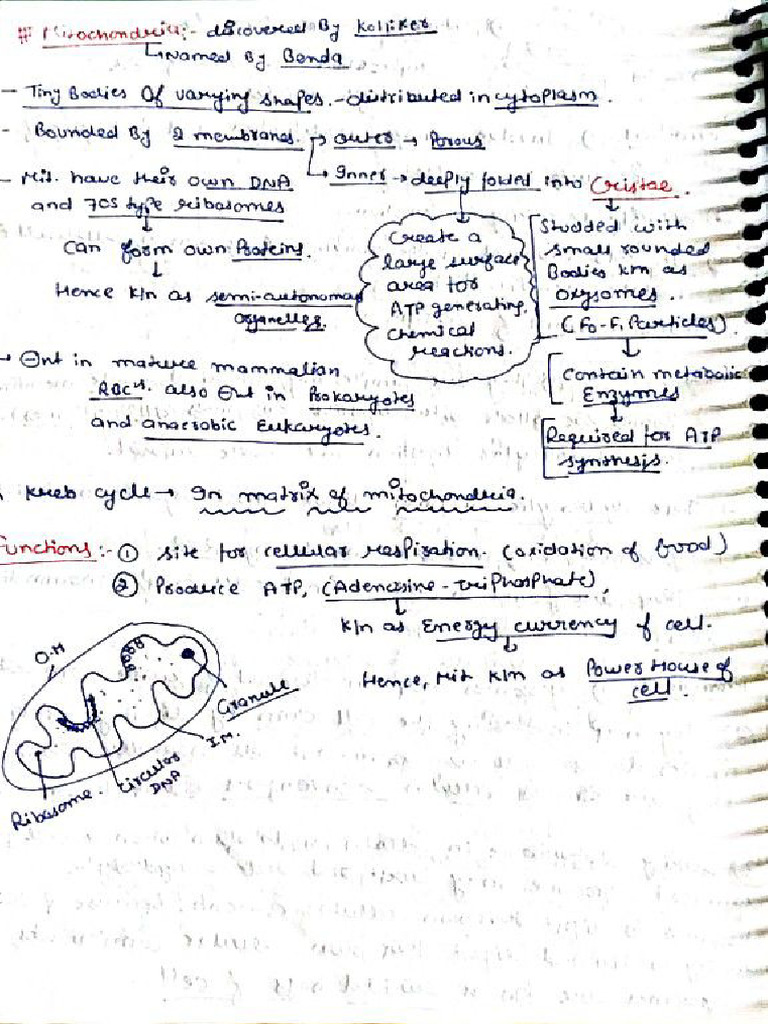 # Mitochondria:- discovered By Kolliker
Named By Benda
- Tiny Bodies Of varying shapes. - distributed in cytoplasm.
- Bounded By 2 membranes. → outer → Porous
→ Inner → deeply folded into Cristae.
- Mit. have their own DNA
and 70s type ribosomes
↓
Can form own Proteins.
↓
Hence k/n as semi-autonomous
organelles.
Create a
large surface
area for
ATP generating
chemical
reactions.
Studded with
small rounded
Bodies k/n as
oxysomes.
(F0-F1 Particles)
↓
Contain metabolic
Enzymes
↓
Required for ATP
synthesis.
→ ⊖nt in mature mammalian
RBC's. also ⊖nt in Prokaryotes
and anaerobic Eukaryotes.
Kreb cycle → In matrix of mitochondria.
Functions:- ① site for cellular respiration. (oxidation of food)
② Produce ATP, (Adenosine-triphosphate).
↓
k/n as Energy currency of cell.
↓
Hence, Mit k/n as Power House of
cell.
O.M
Granule
I.M.
Circular
DNA
Ribosome.